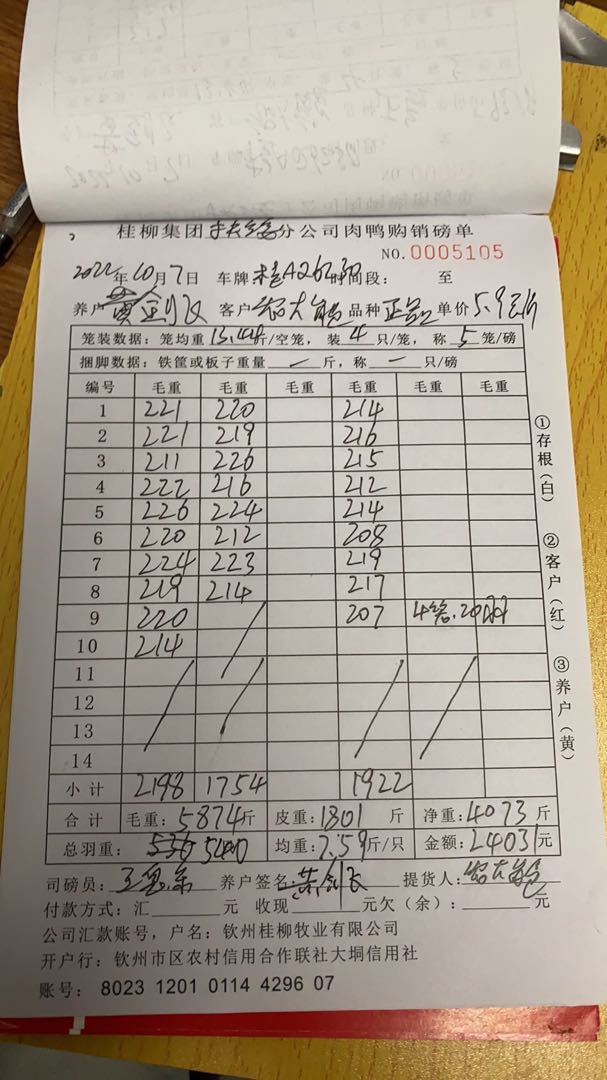 桂柳集团分公司肉鸭购销磅单
NO.0005105
2022年10月7日 车牌 桂A26230 时间段: 至
养户 黄剑飞 客户 品种 正品 单价 5.9元/斤
笼装数据: 笼均重13.44斤/空笼, 装4只/笼, 称5笼/磅
捆脚数据: 铁筐或板子重量 — 斤, 称 — 只/磅
编号 毛重 毛重 毛重 毛重 毛重 毛重
1 221 220 214
2 221 219 216
3 211 226 215
4 222 216 212
5 226 224 214
6 220 212 208
7 224 223 219
8 219 214 217
9 220 207 4笼.20只
10 214
11
12
13
14
小计 2198 1754 1922
合计 毛重:5874斤 皮重:1801斤 净重:4073斤
总羽重: 均重:7.59斤/只 金额:24031元
司磅员: 养户签名: 黄剑飞 提货人:
付款方式: 汇 元 收现 元欠(余): 元
公司汇款账号, 户名: 钦州桂柳牧业有限公司
开户行: 钦州市区农村信用合作联社大垌信用社
账号: 8023 1201 0114 4296 07
①存根(白)
②客户(红)
③养户(黄)